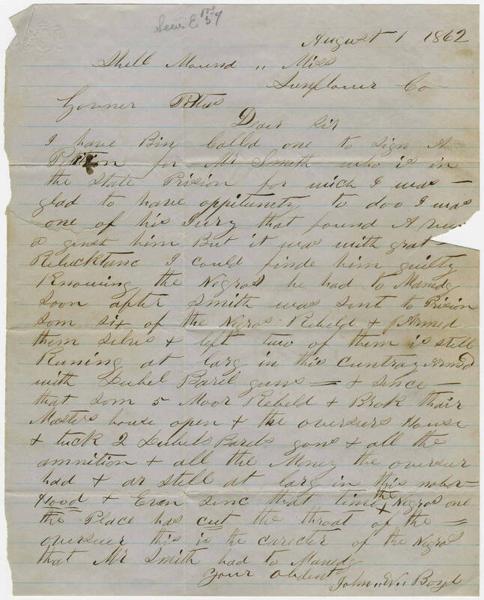 August 1 1862
Shell Mound ,, Miss
Sunflower Co
Govner Pettus
Dear Sir
I have Bin Called one to Sign A
for Mr Smith who is in
the State Prision for wich I was
glad to have oppitunity to doo I was
one of his Jury that found A
a ginst him But it was with grat
Relucktanc I could finde him guilty
Knowing the Negros he had to Manedg
Soon after Smith was sent to Prision
Som six of the Negros Rebeld + Armed
them selves + left two of them is still
Runing at larg in this Cuntray Armd
with Dubel Baril guns = + Since
that Som 5 Moor Rebeld + Brok thair
Masters house open + the oversurs House
+ tuck 2 Dubel Barels gons + all the
amnition + all the Money the oversur
had + ar still at larg in this nabor
Hood + Evan Sinc that time the Negros one
the Place has cut the throat of the =
oversuer this is the carecter of the Negros
that Mr Smith had to Manedg
Your obdient
John .W. Boyd